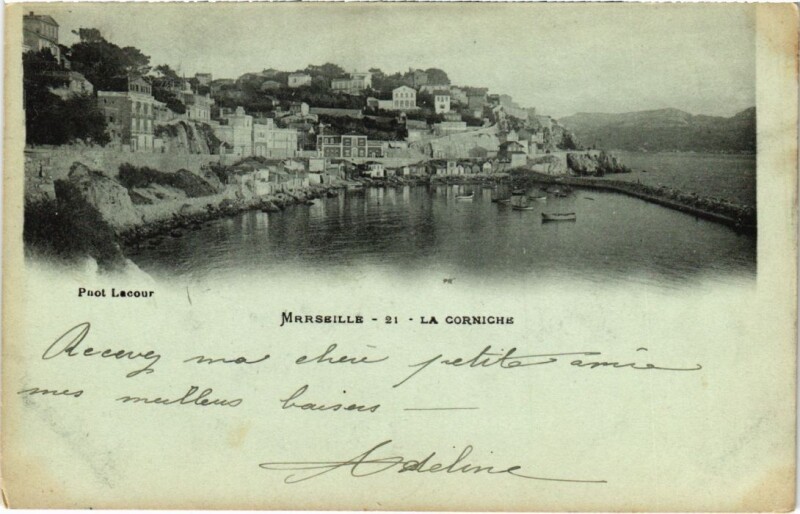 Phot Lacour
MARSEILLE - 21 - LA CORNICHE
Recevez ma chère petite amie
mes meilleurs baisers —
Adéline